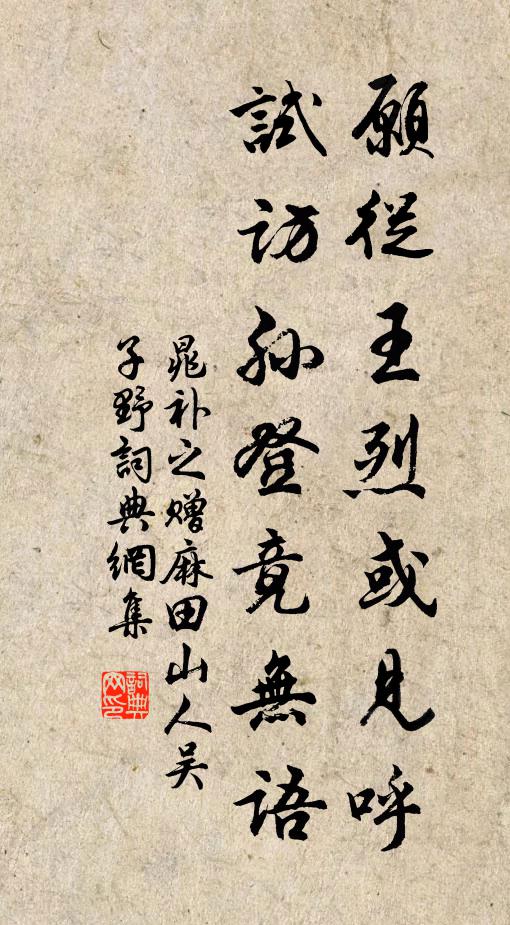 願從王烈或見呼
試訪孫登竟無語
晁补之赠麻田山人吴
子野詞典網集
詞典
网印